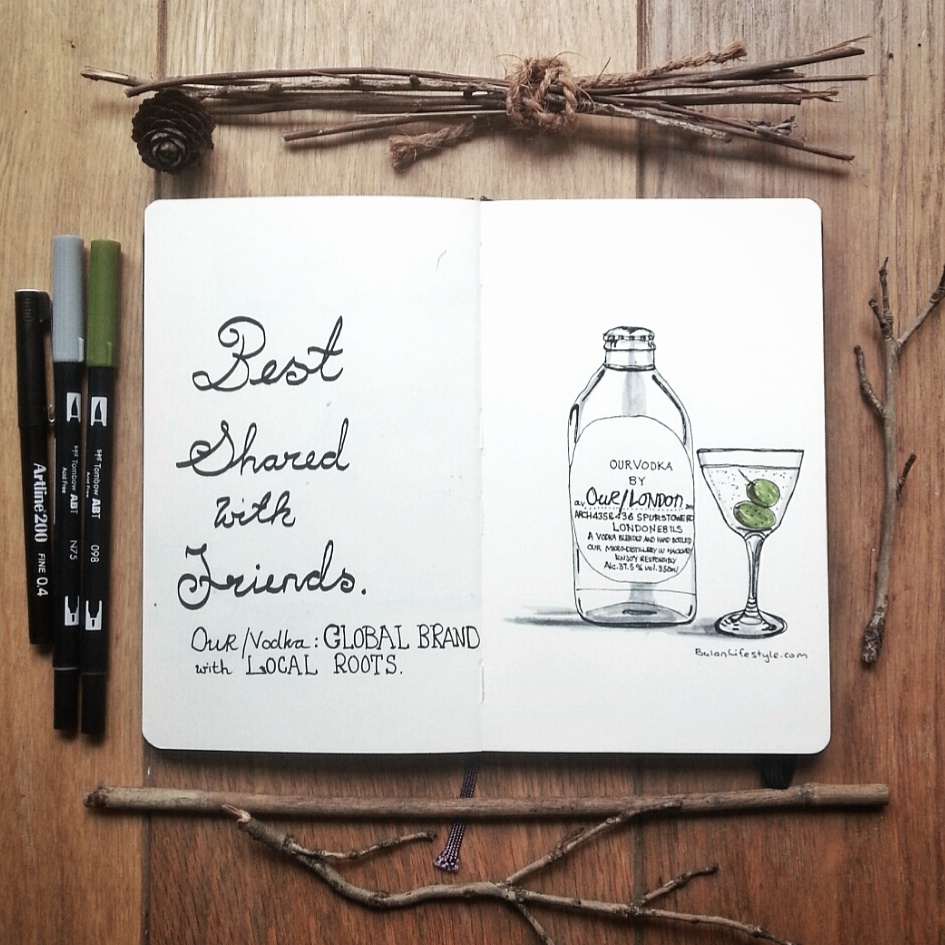 Best
Shared
with
Friends.
Our/Vodka: GLOBAL BRAND
with LOCAL ROOTS.
OUR VODKA
BY
OuR/LONDON
ARCH 435&436 SPURSTOWE RD
LONDON E8 1LS
A VODKA BLENDED AND HAND BOTTLED
OUR MICRO-DISTILLERY IN HACKNEY
ENJOY RESPONSIBLY
Alc. 37.5% vol. 350ml
BulanLifestyle.com
Artline 200 FINE 0.4
Tombow ABT
Acid Free
N75
Tombow ABT
Acid Free
098